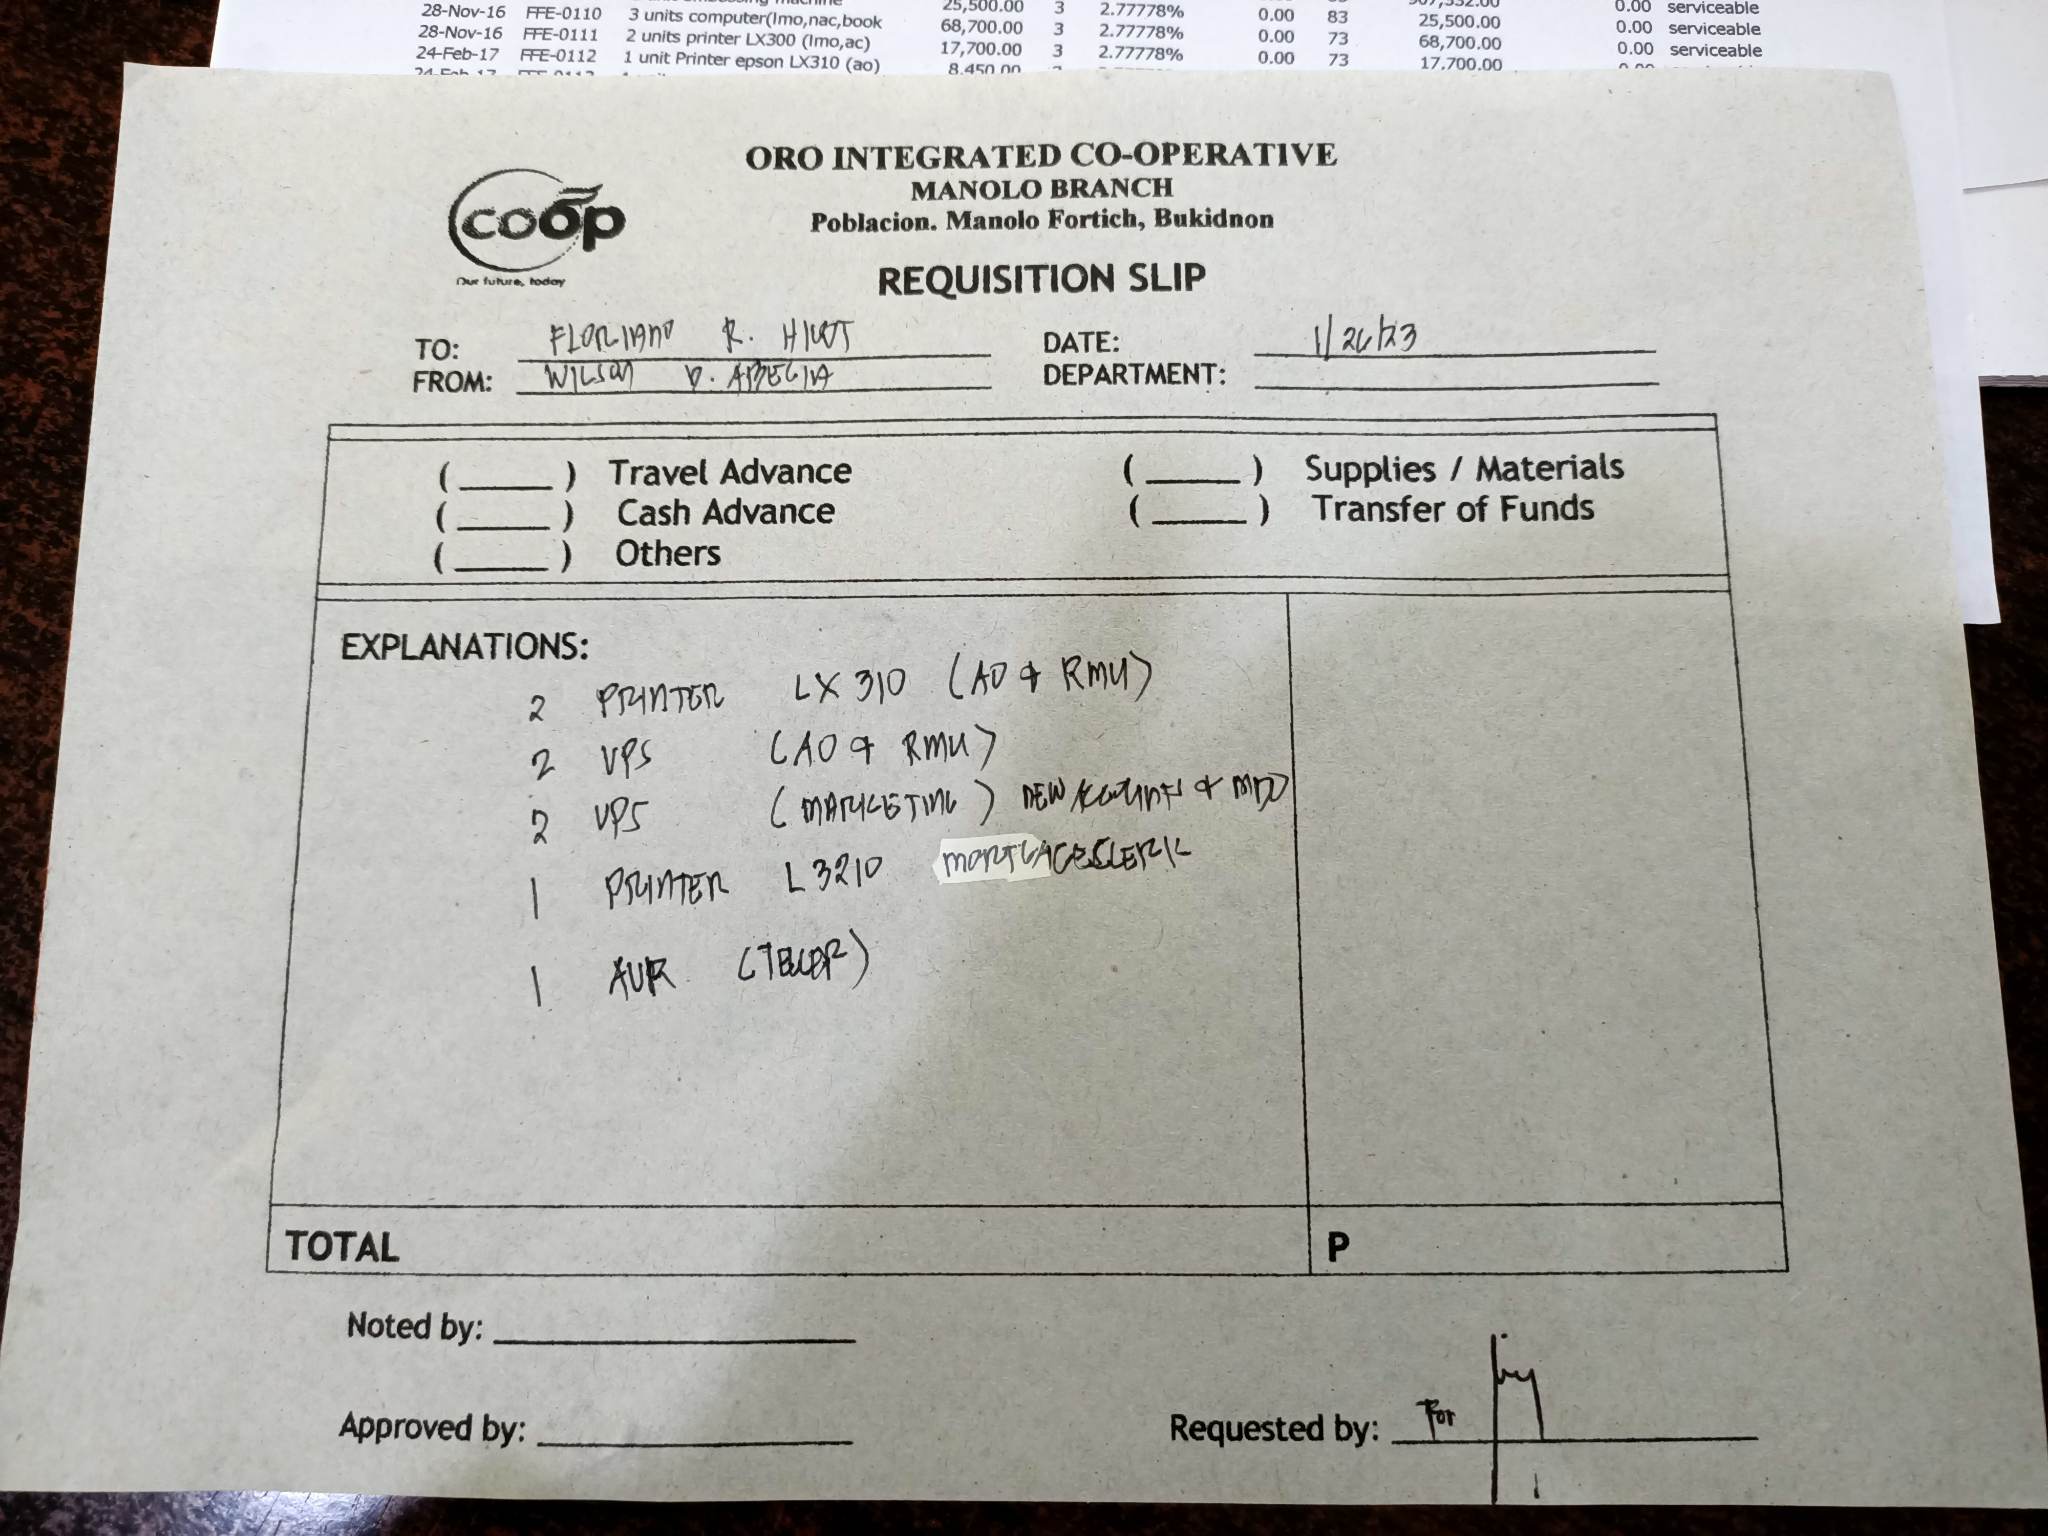 28-Nov-16 FFE-0110 3 units computer(lmo,nac,book 25,500.00 3 2.77778% 0.00 83 25,500.00 0.00 serviceable
28-Nov-16 FFE-0111 2 units printer LX300 (lmo,ac) 68,700.00 3 2.77778% 0.00 73 68,700.00 0.00 serviceable
24-Feb-17 FFE-0112 1 unit Printer epson LX310 (ao) 17,700.00 3 2.77778% 0.00 73 17,700.00 0.00 serviceable
8,450.00
coop
Our future, today
ORO INTEGRATED CO-OPERATIVE
MANOLO BRANCH
Poblacion. Manolo Fortich, Bukidnon
REQUISITION SLIP
TO: FLORIANO R. DATE: 1/26/23
FROM: WILSON DEPARTMENT:
( ____ ) Travel Advance ( ____ ) Supplies / Materials
( ____ ) Cash Advance ( ____ ) Transfer of Funds
( ____ ) Others
EXPLANATIONS:
2 PRINTER LX 310 (AO & RMU)
2 UPS (AO & RMU)
2 UPS (MARKETING) NEW ACCOUNTS & MDO
1 PRINTER L3210 MORTGAGE CLERK
1 AVR (TELLER)
TOTAL P
Noted by:
Approved by: Requested by: For